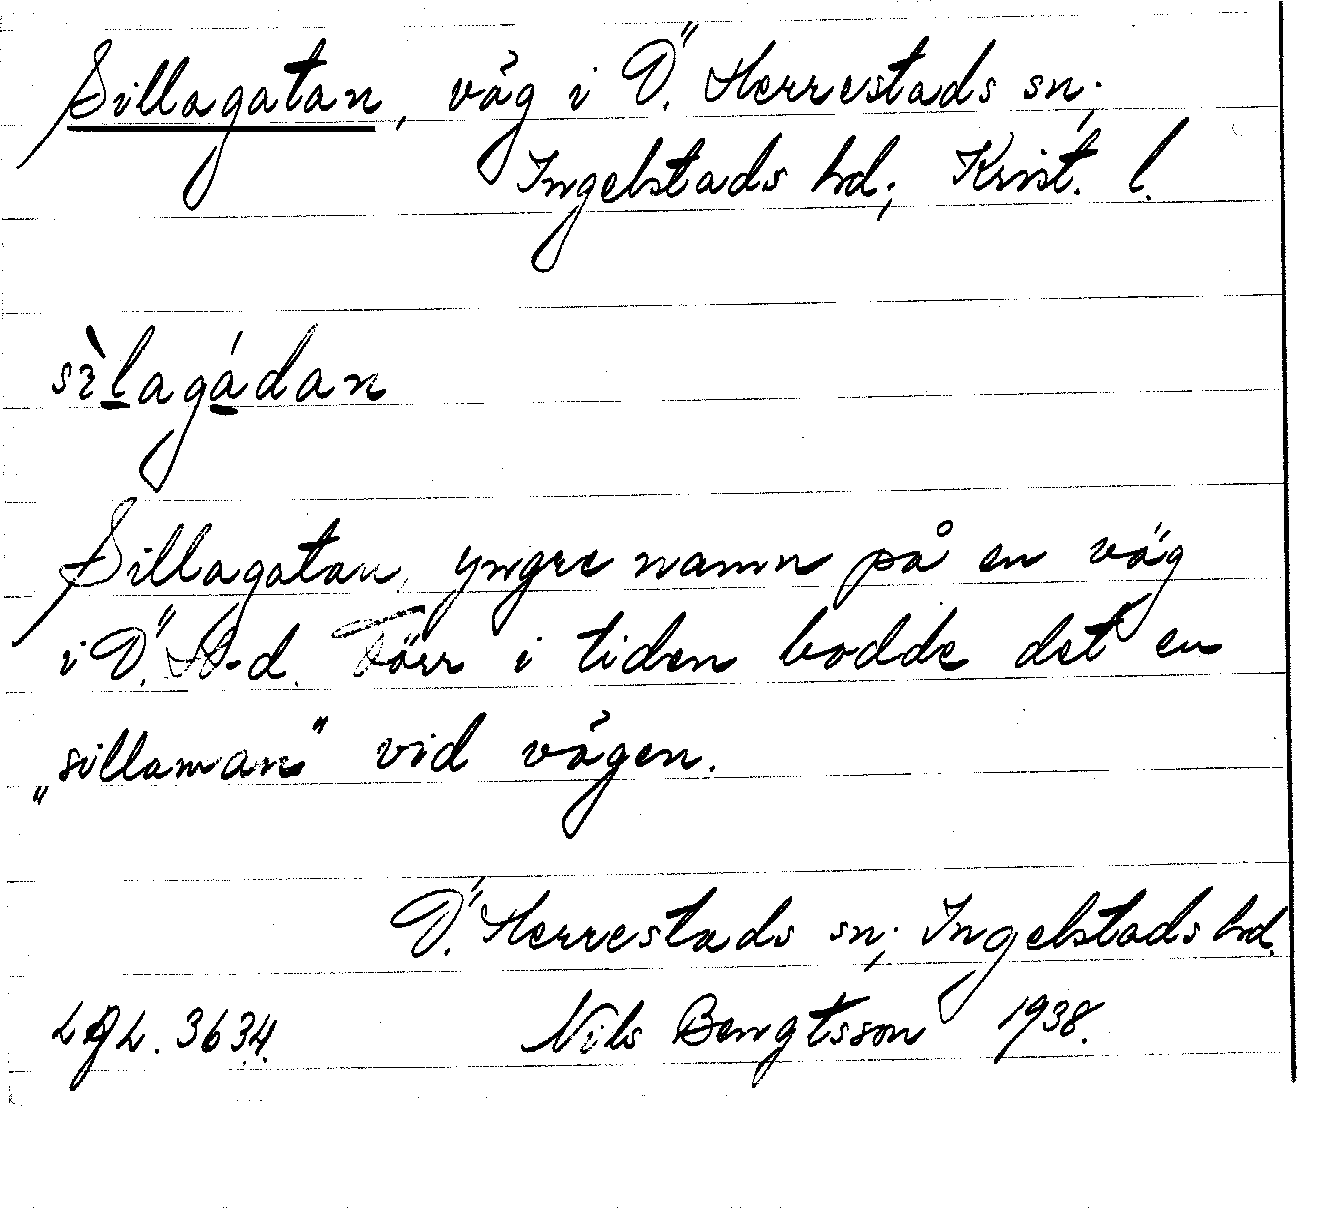 Sillagatan, väg i Ö. Herrestads sn;
Ingelstads hd; Krist. l.
sìlagádan
Sillagatan, yngre namn på en väg
i Ö. H-d. Förr i tiden bodde det en
„sillaman” vid vägen.
Ö. Herrestads sn; Ingelstads hd.
3634. Nils Bengtsson 1938.